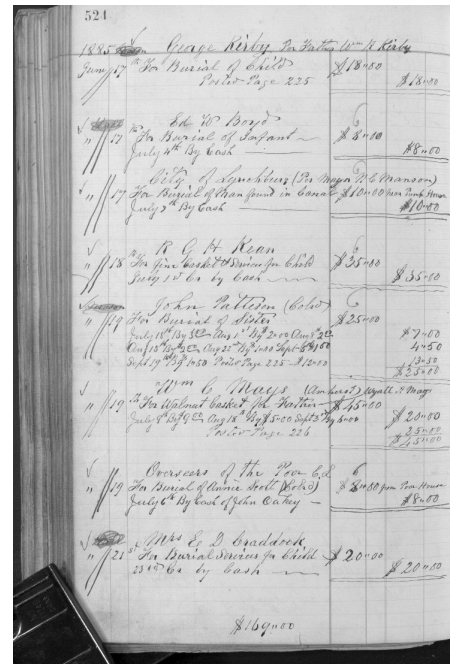 524
1885 George Kirby Per Father Wm R Kirby
June 17th For Burial of Child $18"00
Posted Page 225 $18"00
Ed W Boyd
" 17th For Burial of Infant $8"00
July 4th By Cash $8"00
City of Lynchburg (Per Mayor N.C. Manson)
" 17 For Burial of Man found in Canal $10"00 from Pump House
July 7th By Cash $10"00
R G H Kean
" 18th For fine Casket & Services for Child $35"00
July 1st Cr by Cash $35"00
John Pattison (Cold)
" 19th For Burial of Sister $25"00
July 18th By Aug 1st By 2"00 Aug $7"00
Aug 15th By Aug 22nd By Sept 5th 4"50
Sept 19th By 1"50 Posted Page 225 - $12"00 13"50
$25"00
Wm C Mays (Amherst) Wyatt H Mays
" 19th For Walnut Casket for Father $45"00
July 8th By Aug 18th By $5"00 Sept 5th By 6"00 $20"00
Posted Page 226 25"00
$45"00
Overseers of the Poor C.L
" 19 For Burial of Annie Scott (Cold) $8"00 from Poor House
July 6th By Cash of John $8"00
Mrs E D Craddock
" 21st For Burial Services for Child $20"00
23rd Cr by Cash $20"00
$169"00